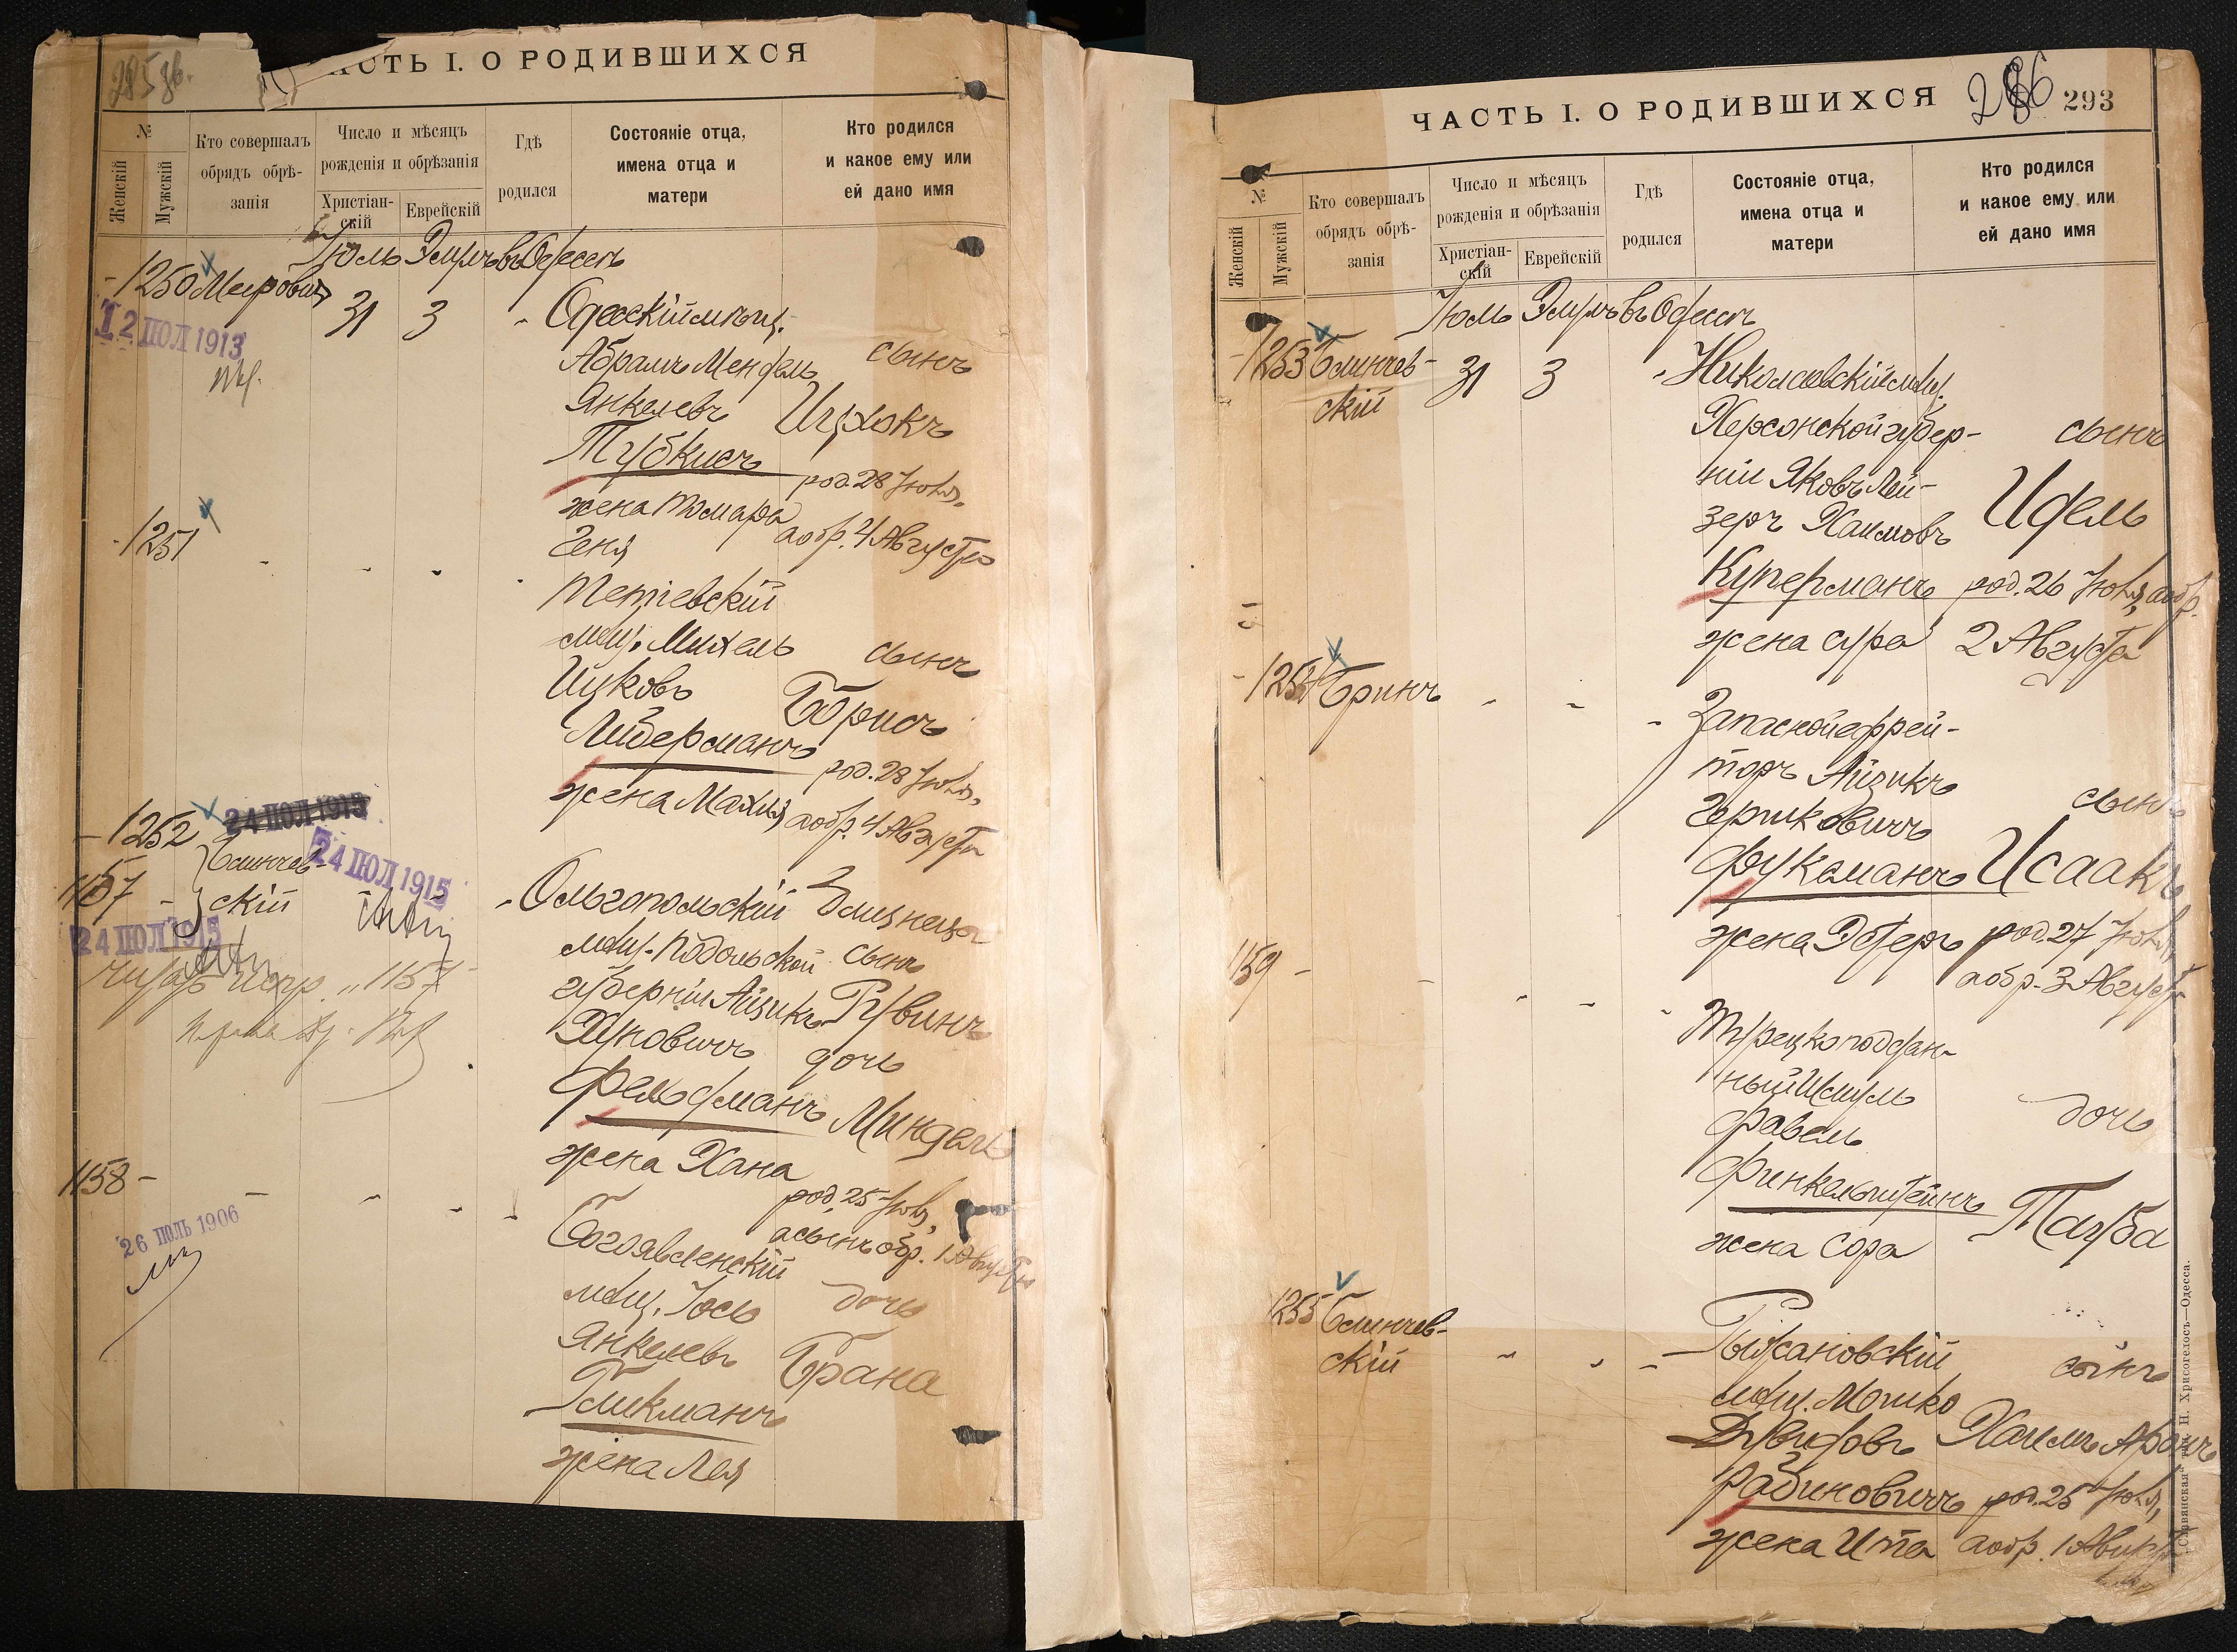 285 об.
ЧАСТЬ I. О РОДИВШИХСЯ
№
Женскій
Мужскій
Кто совершалъ
обрядъ обрѣ-
занія
Число и мѣсяцъ
рожденія и обрѣзанія
Христіан-
скій
Еврейскій
Гдѣ
родился
Состояніе отца,
имена отца и
матери
Кто родился
и какое ему или
ей дано имя
Іюль Элулъ въ Одессѣ
1250 Меерович
31 3
Одесскій мѣщ.
Абрамъ Мендель
Янкелевъ
Тубкисъ
жена Тамара
Геня
сынъ
Ицхокъ
род. 28 Іюля,
а обр. 4 Августа
12 ІЮЛ 1913
1251
Тетіевскій
мѣщ. Михель
Ицковъ
Либерманъ
жена Махля
сынъ
Борисъ
род. 28 Іюля,
а обр. 4 Августа
1252
1157
Блинчев-
скій
24 ІЮЛ 1915
24 ІЮЛ 1915
24 ІЮЛ 1915
1157
Ольгопольскій
мѣщ. Подольской
губерніи Айзикъ
Хуновичъ
Фельдманъ
жена Хана
Близнецы
сынъ
Рувинъ
дочь
Миндель
род. 25 Іюля,
а сынъ обр. 1 Августа
1158
26 ІЮЛЬ 1906
Богоявленскій
мѣщ. Іось
Янкелевъ
Гликманъ
жена Лея
дочь
Брана
ЧАСТЬ I. О РОДИВШИХСЯ
286
293
№
Женскій
Мужскій
Кто совершалъ
обрядъ обрѣ-
занія
Число и мѣсяцъ
рожденія и обрѣзанія
Христіан-
скій
Еврейскій
Гдѣ
родился
Состояніе отца,
имена отца и
матери
Кто родился
и какое ему или
ей дано имя
Іюль Элулъ въ Одессѣ
1253 Блинчев-
скій
31 3
Николаевскій мѣщ.
Херсонской губер-
ніи Яковъ Лей-
зеръ Хаимовъ
Куперманъ
жена Сура
сынъ
Идель
род. 26 Іюля, а обр.
2 Августа
1254 Бринъ
Запасной ефрей-
торъ Айзикъ
Гершковичъ
Фуксманъ
жена Эстеръ
сынъ
Исаакъ
род. 27 Іюля,
а обр. 3 Августа
1159
Турецкоподдан-
ный Шмуль
Фавель
Финкельштейнъ
жена Сора
дочь
Тауба
1255 Блинчев-
скій
Рыжановскій
мѣщ. Мошко
Дувидовъ
Рабиновичъ
жена Ита
сынъ
Хаимъ Аронъ
род. 25 Іюля,
а обр. 1 Августа
„Славянская“ тип. Н. Хрисогелосъ—Одесса.